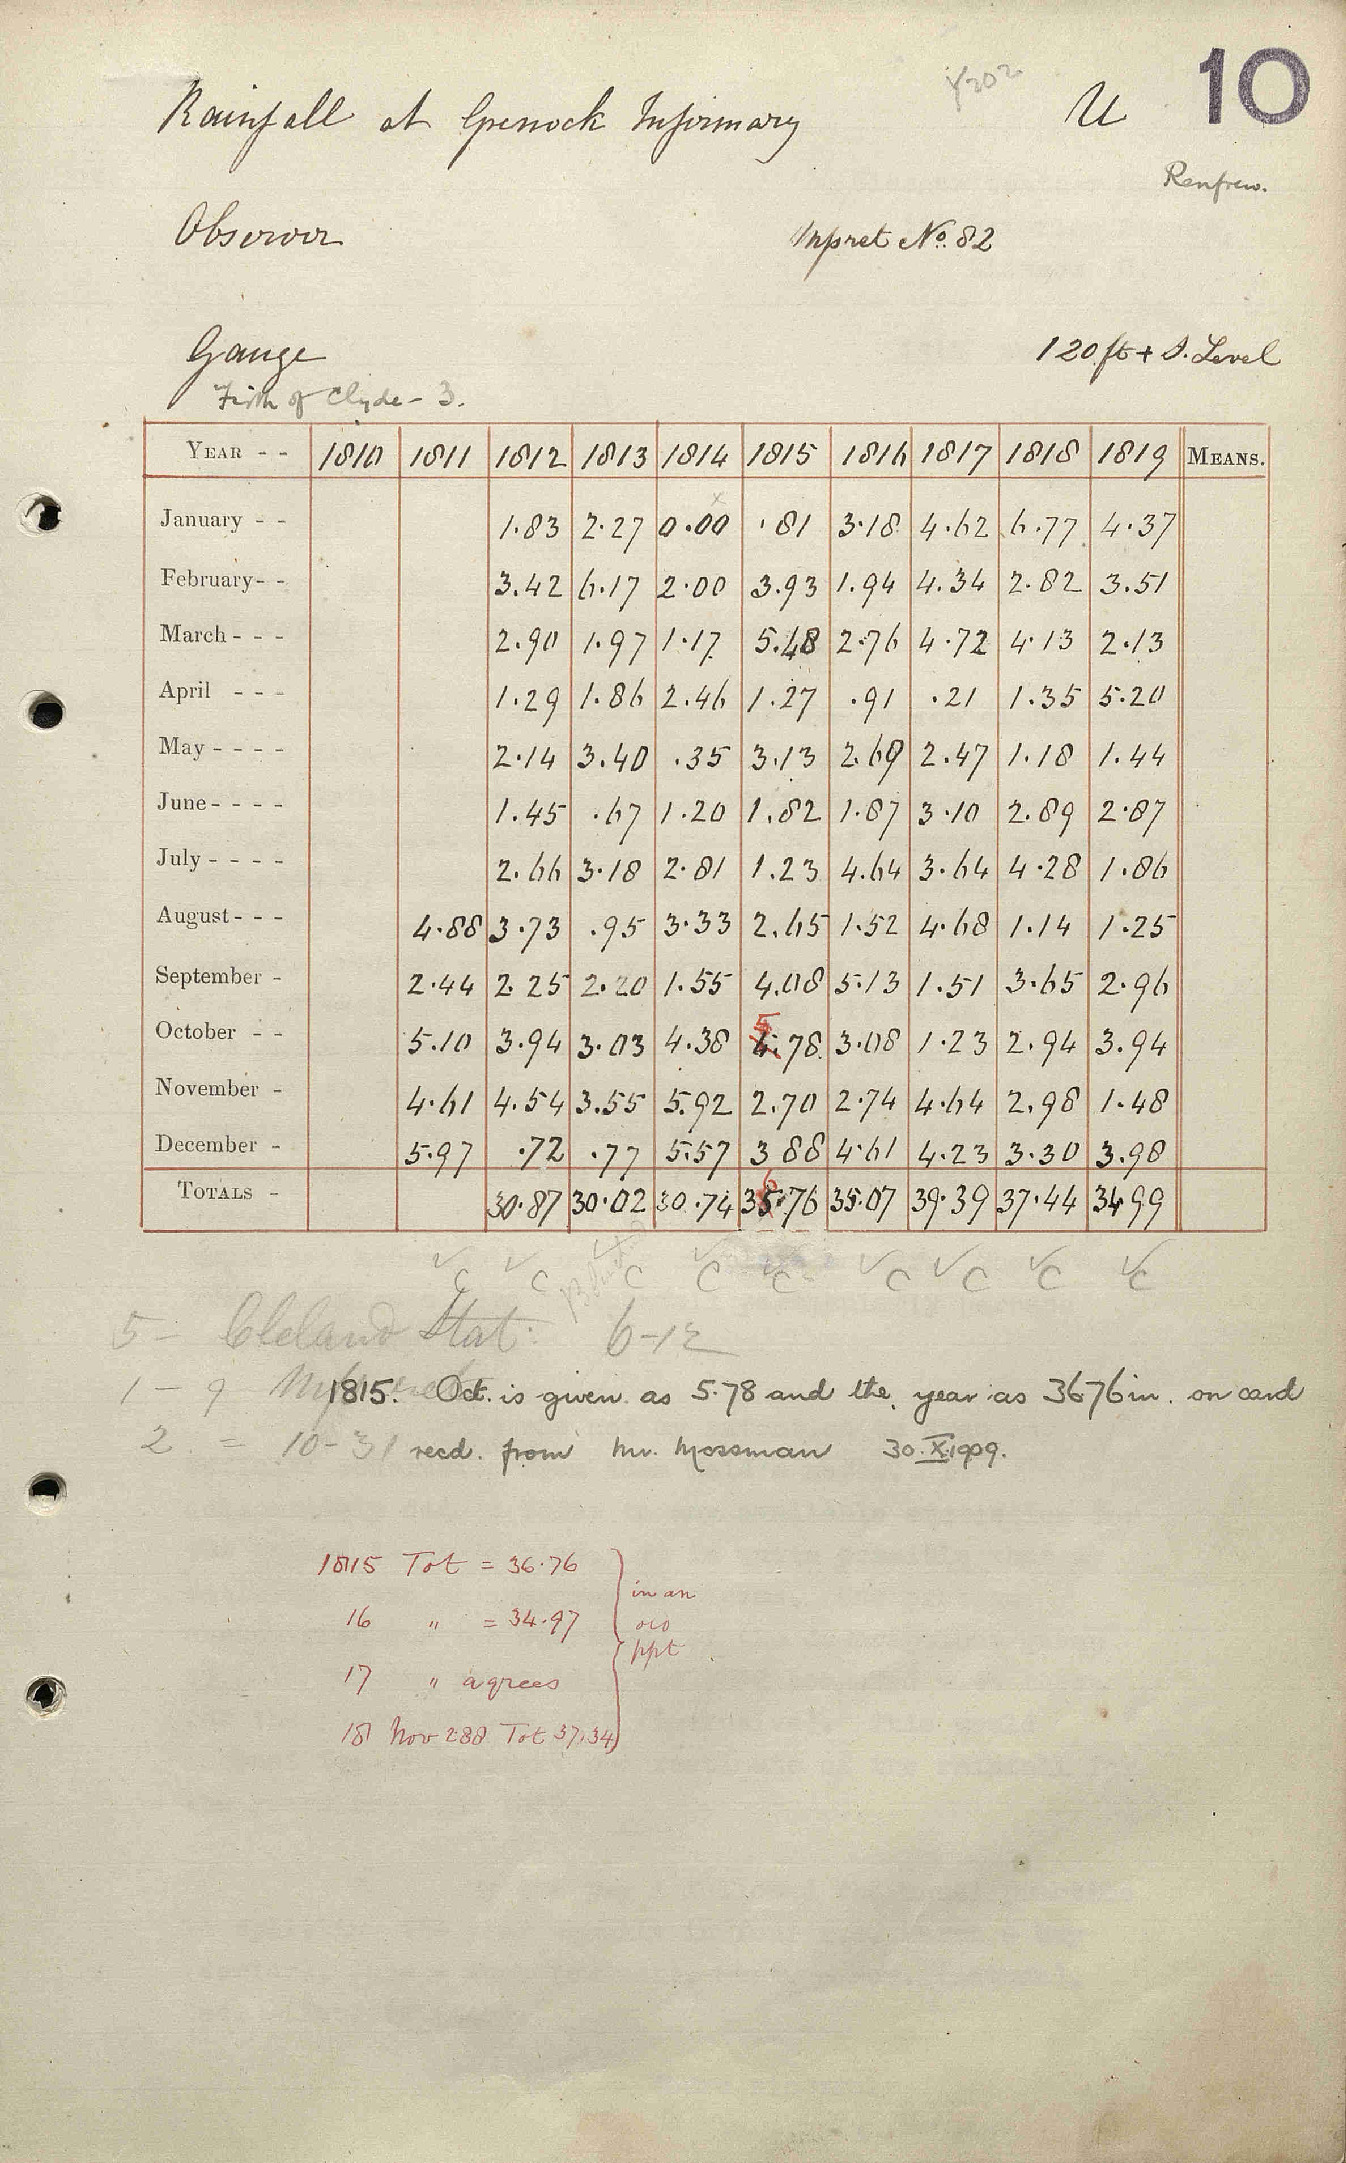 10
Y202
Rainfall at Greenock Infirmary U
Renfrew.
Observer Inpret No. 82
Gauge 120 ft + S. Level
Firth of Clyde - 3.
YEAR - - 1810 1811 1812 1813 1814 1815 1816 1817 1818 1819 MEANS.
x
January - - 1.83 2.27 0.00 .81 3.18 4.62 6.77 4.37
February - - 3.42 6.17 2.00 3.93 1.94 4.34 2.82 3.51
March - - - 2.90 1.97 1.17 5.48 2.76 4.72 4.13 2.13
April - - - 1.29 1.86 2.46 1.27 .91 .21 1.35 5.20
May - - - - 2.14 3.40 .35 3.13 2.69 2.47 1.18 1.44
June - - - - 1.45 .67 1.20 1.82 1.87 3.10 2.89 2.87
July - - - - 2.66 3.18 2.81 1.23 4.64 3.64 4.28 1.86
August - - - 4.88 3.73 .95 3.33 2.65 1.52 4.68 1.14 1.25
September - 2.44 2.25 2.20 1.55 4.08 5.13 1.51 3.65 2.96
5
October - - 5.10 3.94 3.03 4.38 4.78 3.08 1.23 2.94 3.94
November - 4.61 4.54 3.55 5.92 2.70 2.74 4.64 2.98 1.48
December - 5.97 .72 .77 5.57 3 88 4.61 4.23 3.30 3.98
6
TOTALS - 30.87 30.02 30.74 35.76 35.07 39.39 37.44 34.99
✓C ✓C ✓C ✓C ✓C ✓C ✓C ✓C ✓C
5 - Cleland Stat: 6-12
1 - 9 1815. Oct. is given as 5.78 and the year as 36.76 in. on card
2. = 10-31 recd. from Mr. Mossman 30.X.1909.
1815 Tot = 36.76
in an
16 " = 34.97 old
ppt
17 " agrees
18 Nov 2.88 Tot 37.34